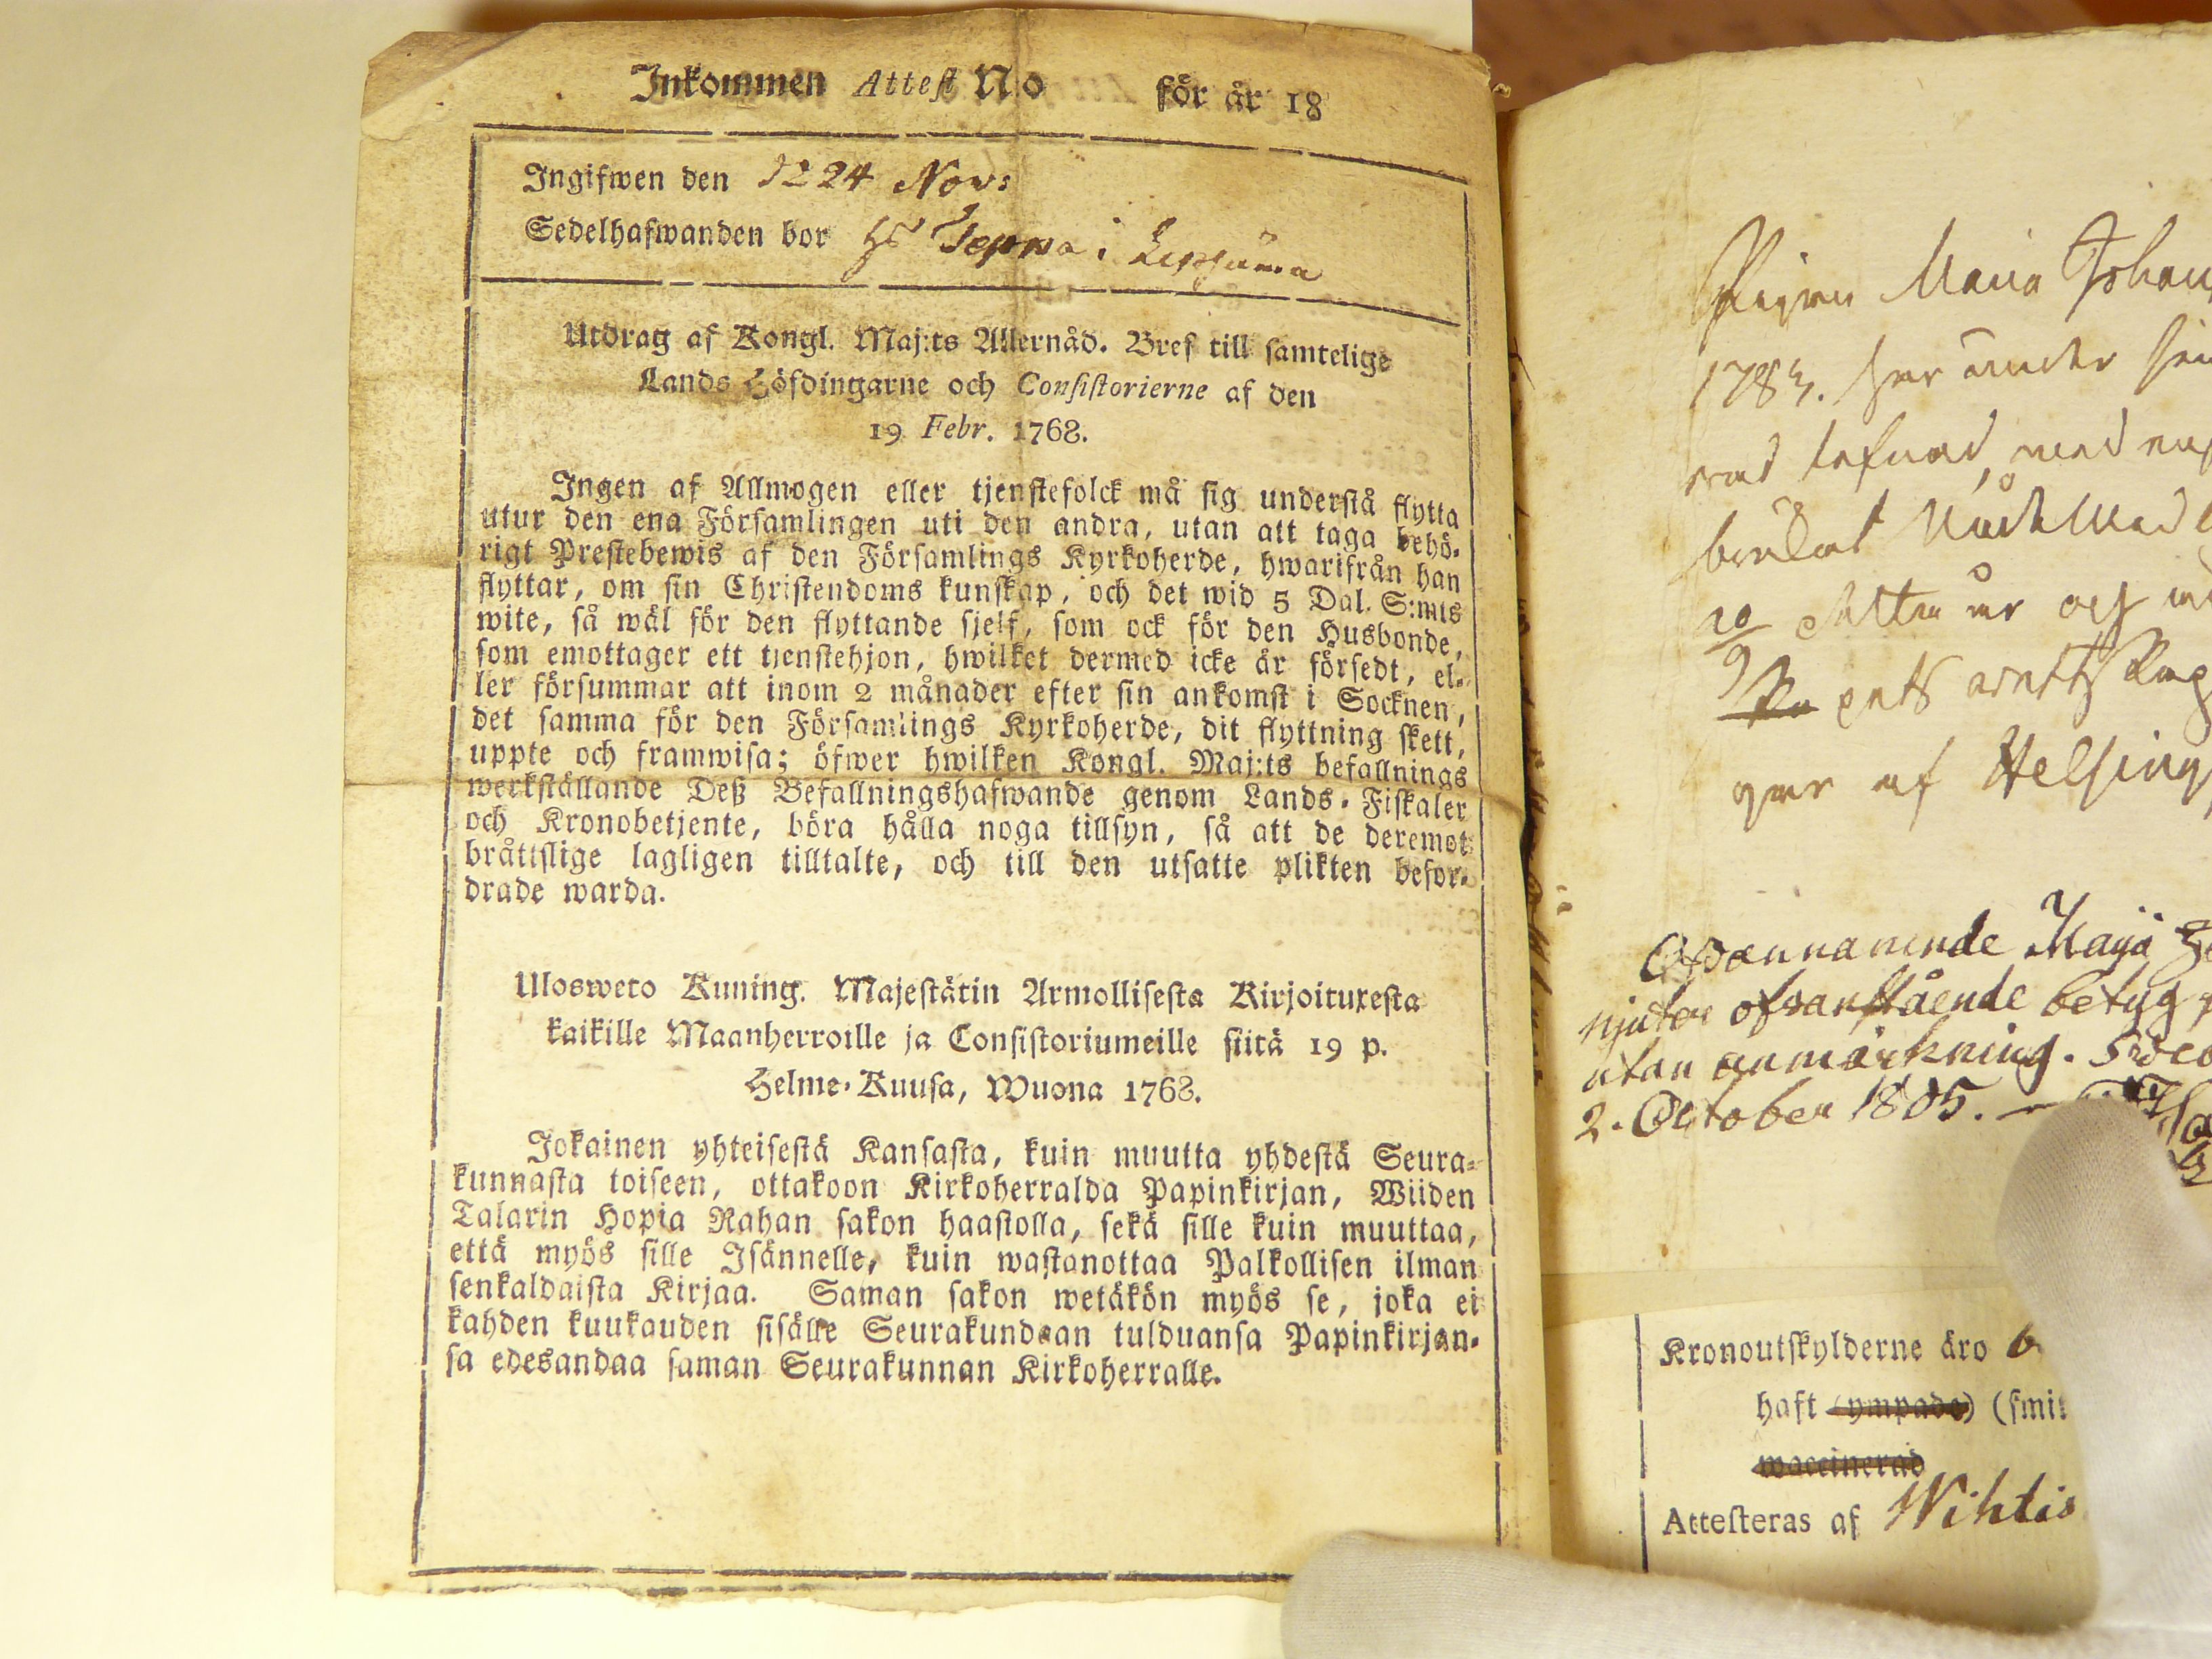 Inkommen Attest N:o för år 18
Ingifwen den 24 Nov:
Sedelhafwanden bor hs Seppa i
Utdrag af Kongl. Maj:ts Allernåd. Bref till samtelige
Lands Höfdingarne och Consistorierne af den
19 Febr. 1768.
Ingen af Allmogen eller tjenstefolck må sig understå flytta
utur den ena Församlingen uti den andra, utan att taga behö-
rigt Prestebewis af den Församlings Kyrkoherde, hwarifrån han
flyttar, om sin Christendoms kunskap, och det wid 5 Dal. S:mts
wite, så wäl för den flyttande sjelf, som ock för den Husbonde,
som emottager ett tienstehjon, hwilket dermed icke är försedt, el-
ler försummar att inom 2 månader efter sin ankomst i Socknen,
det samma för den Församlings Kyrkoherde, dit flyttning skett,
uppte och framwisa; öfwer hwilken Kongl. Maj:ts befallnings
werkställande Deß Befallningshafwande genom Lands-Fiskaler
och Kronobetjente, böra hålla noga tillsyn, så att de deremot
bråttslige lagligen tilltalte, och till den utsatte plikten befor-
drade warda.
Ulosweto Kuning. Majestätin Armollisesta Kirjoituxesta
kaikille Maanherroille ja Consistoriumeille siitä 19 p.
Helme-Kuusa, Wuona 1768.
Jokainen yhteisestä Kansasta, kuin muutta yhdestä Seura-
kunnasta toiseen, ottakoon Kirkoherralda Papinkirjan, Wiiden
Talarin Hopia Rahan sakon haastolla, sekä sille kuin muuttaa,
että myös sille Isännelle, kuin wastanottaa Palkollisen ilman
senkaldaista Kirjaa. Saman sakon wetäkön myös se, joka ei
kahden kuukauden sisälle Seurakundaan tulduansa Papinkirjan-
sa edesandaa saman Seurakunnan Kirkoherralle.
Pigan Maria Johan
1783. har under
lefnad, med
10
9
af Helsing
Ofvannemnde Maija
njuter ofvanstående betyg
utan anmärkning.
2. October 1805.
Kronoutskylderne äro
haft (ympade) (smit
waccinerad
Attesteras af Wihtis